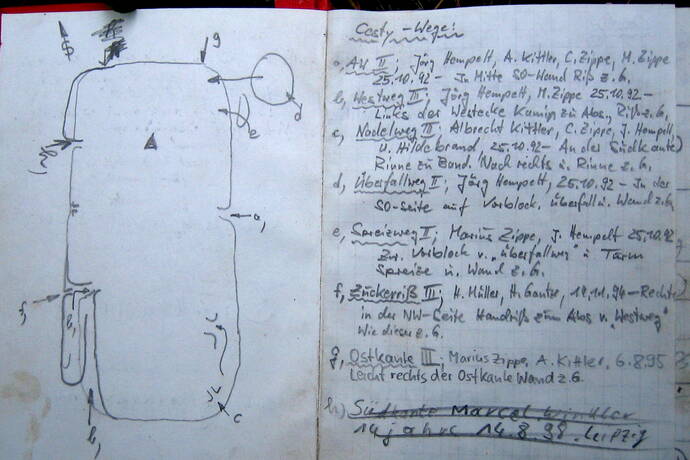 g
d
e
a,
f,
b,
h,
c
Casty-Wege:
a, AW II; Jörg Hempelt, A. Kittler, C. Zippe, M. Zippe
25.10.92 - In Mitte SO-Wand Riß z.G.
b, Westweg III; Jörg Hempelt, M. Zippe 25.10.92 -
Links der Westecke Kamin zu Abs., Riß z.G.
c, Nadelweg III; Albrecht Kittler, C. Zippe, J. Hempelt
u. Hildebrand, 25.10.92 - An der Südkante
Rinne zu Band. Nach rechts u. Rinne z.G.
d, Überfallweg II; Jörg Hempelt, 25.10.92 - In der
SO-Seite auf Vorblock. Überfall u. Wand z.G.
e, Spreizweg II; Marius Zippe, J. Hempelt 25.10.92
Zw. Vorblock v. "Überfallweg" u. Turm
Spreize u. Wand z.G.
f, Zuckerriß III; H. Müller, H. Gantze, 12.11.94 - Rechts
in der NW-Seite Handriß zum Abs v. "Westweg"
Wie dieser z.G.
g, Ostkante III; Marius Zippe, A. Kittler, 6.8.95
Leicht rechts der Ostkante Wand z.G.
h) Südkante Marcel Winkler
14 Jahre 14.8.98. Leipzig